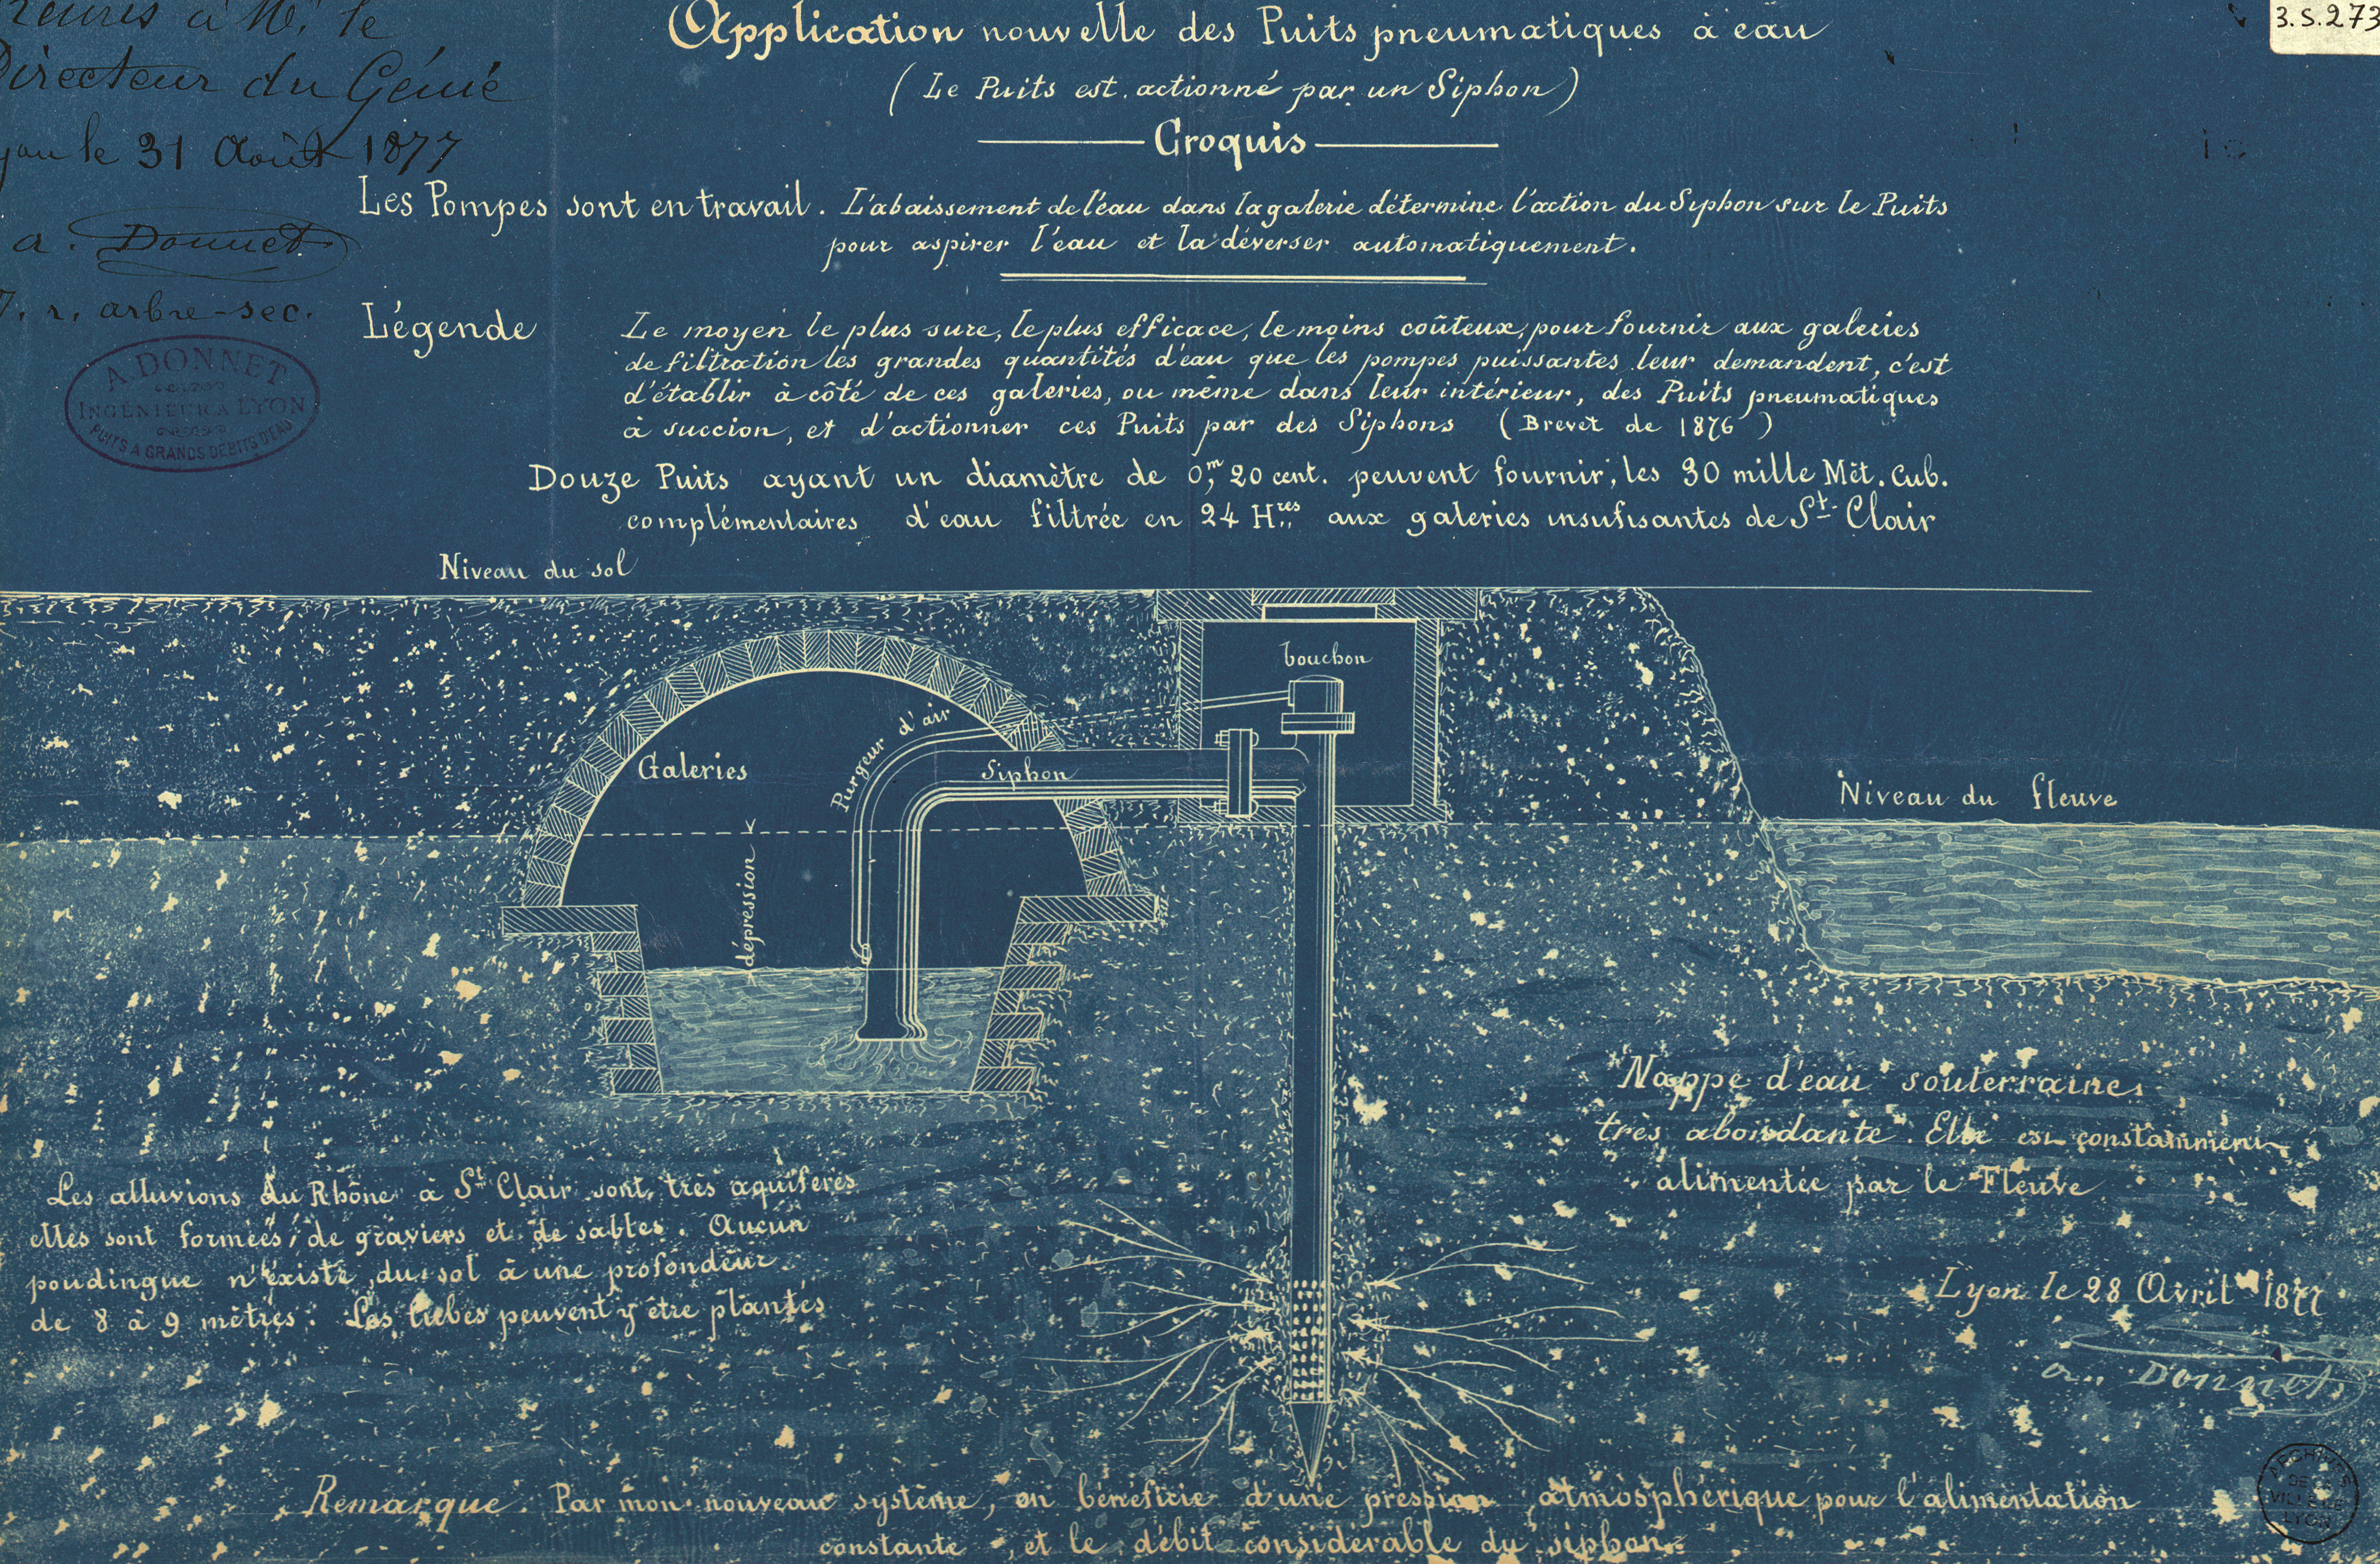 3.S.273
à Mr. le
Directeur du Génie
le 31 Août 1877
a. Donnet
r. arbre-sec.
A. DONNET
INGÉNIEUR A LYON
PUITS A GRANDS DÉBITS D'EAU
Application nouvelle des Puits pneumatiques à eau
( Le Puits est actionné par un Siphon )
Croquis
Les Pompes sont en travail. L'abaissement de l'eau dans la galerie détermine l'action du Siphon sur le Puits
pour aspirer l'eau et la déverser automatiquement.
Légende
Le moyen le plus sure, le plus efficace, le moins coûteux, pour fournir aux galeries
de filtration les grandes quantités d'eau que les pompes puissantes leur demandent, c'est
d'établir à côté de ces galeries, ou même dans leur intérieur, des Puits pneumatiques
à succion, et d'actionner ces Puits par des Siphons ( Brevet de 1876 )
Douze Puits ayant un diamètre de 0,m 20 cent. peuvent fournir, les 30 mille Mèt. Cub.
complémentaires d'eau filtrée en 24 Hres aux galeries insufisantes de St. Clair
Niveau du sol
bouchon
Purgeur d'air
Galeries
Siphon
Niveau du fleuve
dépression
Nappe d'eau souterraine,
très abondante. Elle est constamment
alimentée par le Fleuve
Les alluvions du Rhône à St Clair sont très aquifères
elles sont formées, de graviers et de sables. Aucun
poudingue n'existe, du sol à une profondeur
de 8 à 9 mètres. Les tubes peuvent y être plantés
Lyon le 28 Avril 1877
a. Donnet
Remarque. Par mon nouveau système, on bénéficie d'une pression atmosphérique pour l'alimentation
constante, et le débit considérable du siphon.
ARCHIVES
DE LA
VILLE DE
LYON